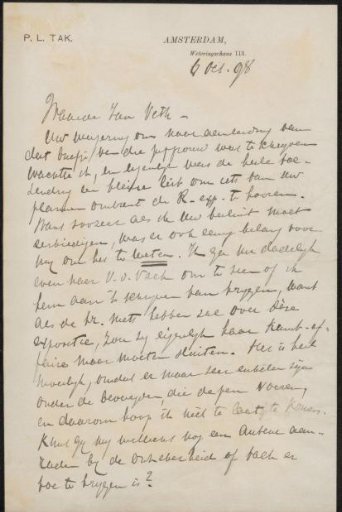 P. L. TAK.
AMSTERDAM,
Weteringschans 113.
6 Oct. 98
Waarde Jan Veth –
Uw weigering om naar aanleiding van
dat briefje van die juffrouw wat te schrijven
wachtte ik, en eigenlijk was de heele toe-
zending een kleine list om iets van uw
plannen omtrent de R. exp. te hooren.
Want zoozeer als ik Uw besluit moet
eerbiedigen, was er ook eenig belang voor
my om het te weten. Ik ga nu dadelijk
even naar V. d. Valk om te zien of ik
hem aan 't schrijven kan krijgen, want
als de Kr. niets hebben zou over deze
expositie, zou zy eigenlijk haar kunst-af-
faire maar moeten sluiten. Het is heel
moeilyk, omdat er maar zeer enkelen zijn
onder de bevoegden, die de pen voeren,
en daarom hoop ik niet te laat te komen.
Kunt gy my willicht nog een auteur aan-
raden by de ontstentenis of valk er
toe te krijgen is?